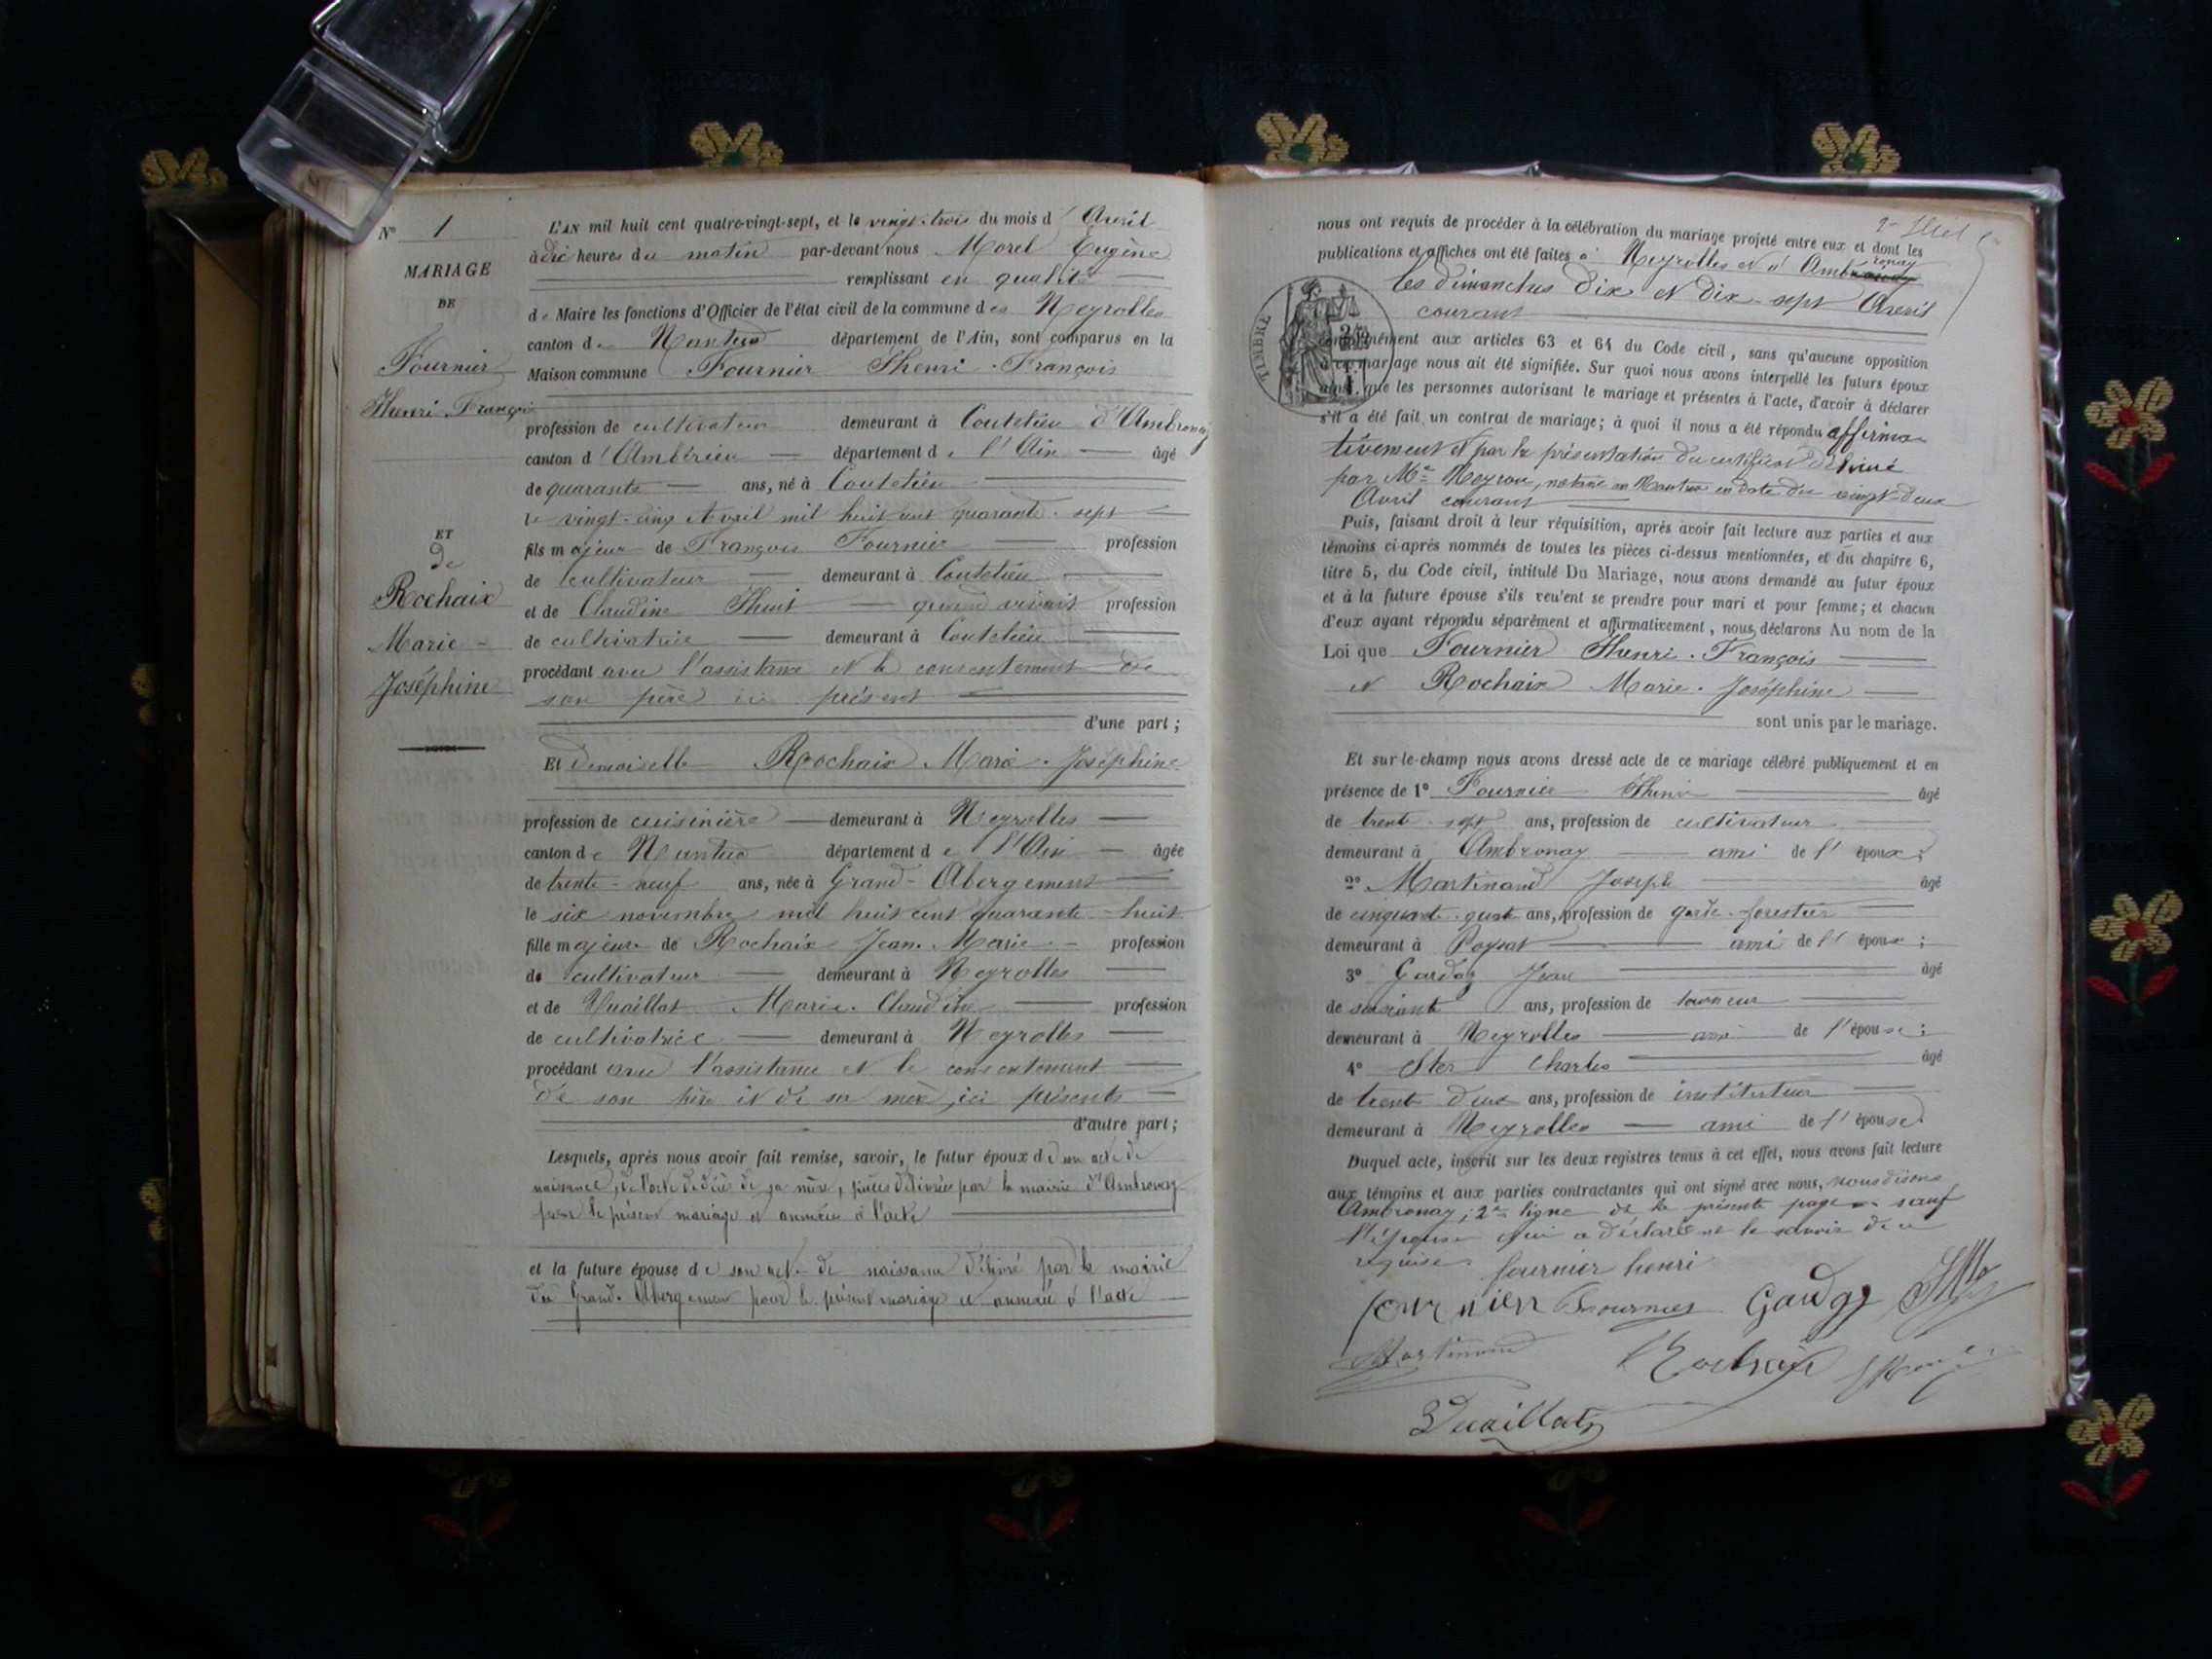 N° 1
MARIAGE
DE
Fournier
Henri. François
ET
de
Rochaix
Marie -
Joséphine
L'AN mil huit cent quatre-vingt-sept, et le vingt-trois du mois d' Avril
à dix heures du matin par-devant nous Morel Eugène
remplissant en qualité
de Maire les fonctions d'Officier de l'état civil de la commune des Neyrolles
canton de Nantua département de l'Ain, sont comparus en la
Maison commune Fournier Henri. François
profession de cultivateur demeurant à Coutelieu d'Ambronay
canton d'Ambérieu département de l'Ain âgé
de quarante ans, né à Coutelieu
le vingt-cinq Avril mil huit cent quarante. sept
fils majeur de François Fournier profession
de cultivateur demeurant à Coutelieu
et de Claudine quand vivait profession
de cultivatrice demeurant à Coutelieu
procédant avec l'assistance et le consentement de
son père ici présent
d'une part;
Et Demoiselle Rochaix Marie. Joséphine
profession de cuisinière demeurant à Neyrolles
canton de Nantua département de l'Ain âgée
de trente-neuf ans, née à Grand-Abergement
le six novembre mil huit cent quarante-huit
fille majeure de Rochaix Jean. Marie profession
de cultivateur demeurant à Neyrolles
et de Marie. Claudine profession
de cultivatrice demeurant à Neyrolles
procédant avec l'assistance et le consentement
de son père et de sa mère, ici présents
d'autre part;
Lesquels, après nous avoir fait remise, savoir, le futur époux de son acte de
naissance, de l'acte de décès de sa mère, pièces délivrées par la mairie d'Ambronay
pour le présent mariage et annexées à l'acte
et la future épouse de son acte de naissance délivré par la mairie
du Grand-Abergement pour le présent mariage et annexé à l'acte
nous ont requis de procéder à la célébration du mariage projeté entre eux et dont les
publications et affiches ont été faites à Neyrolles et à Ambronay
les dimanches dix et dix-sept Avril
courant
TIMBRE
conformément aux articles 63 et 64 du Code civil, sans qu'aucune opposition
à ce mariage nous ait été signifiée. Sur quoi nous avons interpellé les futurs époux
ainsi que les personnes autorisant le mariage et présentes à l'acte, d'avoir à déclarer
s'il a été fait un contrat de mariage; à quoi il nous a été répondu affirma-
tivement et par la présentation du certificat délivré
par Me Neyron, notaire à Nantua en date du vingt-deux
Avril courant
Puis, faisant droit à leur réquisition, après avoir fait lecture aux parties et aux
témoins ci-après nommés de toutes les pièces ci-dessus mentionnées, et du chapitre 6,
titre 5, du Code civil, intitulé Du Mariage, nous avons demandé au futur époux
et à la future épouse s'ils veulent se prendre pour mari et pour femme; et chacun
d'eux ayant répondu séparément et affirmativement, nous déclarons Au nom de la
Loi que Fournier Henri. François
et Rochaix Marie. Joséphine
sont unis par le mariage.
Et sur-le-champ nous avons dressé acte de ce mariage célébré publiquement et en
présence de 1° Fournier Henri âgé
de trente-sept ans, profession de cultivateur
demeurant à Ambronay ami de l'époux;
2° Martinand Joseph âgé
de cinquante-quatre ans, profession de garde-forestier
demeurant à Poysat ami de l'époux;
3° Gardaz Jean âgé
de soixante ans, profession de tourneur
demeurant à Neyrolles ami de l'épouse;
4° Ster Charles âgé
de trente deux ans, profession de instituteur
demeurant à Neyrolles ami de l'épouse
Duquel acte, inscrit sur les deux registres tenus à cet effet, nous avons fait lecture
aux témoins et aux parties contractantes qui ont signé avec nous, nous disons
Ambronay, 2e ligne de la présente page sauf
l'épouse qui a déclaré ne le savoir de ce
requise.
fournier henri
fournier Fournier
Martinand Rochaix